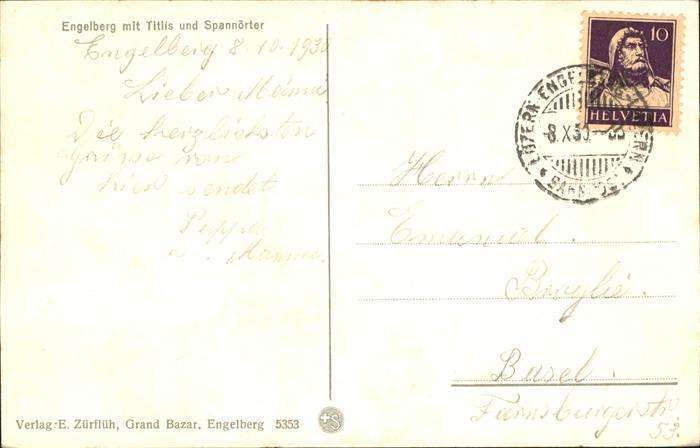 Engelberg mit Titlis und Spannörter
Engelberg 8.10.1930
Lieber
Die herzlichsten
Grüsse von
hier sendet
Mamma.
10
HELVETIA
LUZERN ENGELBERG LUZERN
8.X.30
BAHNPOST
Herrn
Emanuel.
Basel.
Farnsburgerstr.
53.
Verlag: E. Zürflüh, Grand Bazar, Engelberg 5353